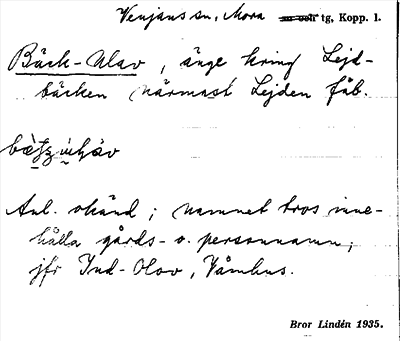 Venjans sn, Mora tg, Kopp. l.
Bäck-Olav, änge kring Lejd-
bäcken närmast Lejden fäb.
Anl. okänd; namnet tros inne-
hålla gårds- o. personnamn;
jfr Ind-Olov, Våmhus.
Bror Lindén 1935.